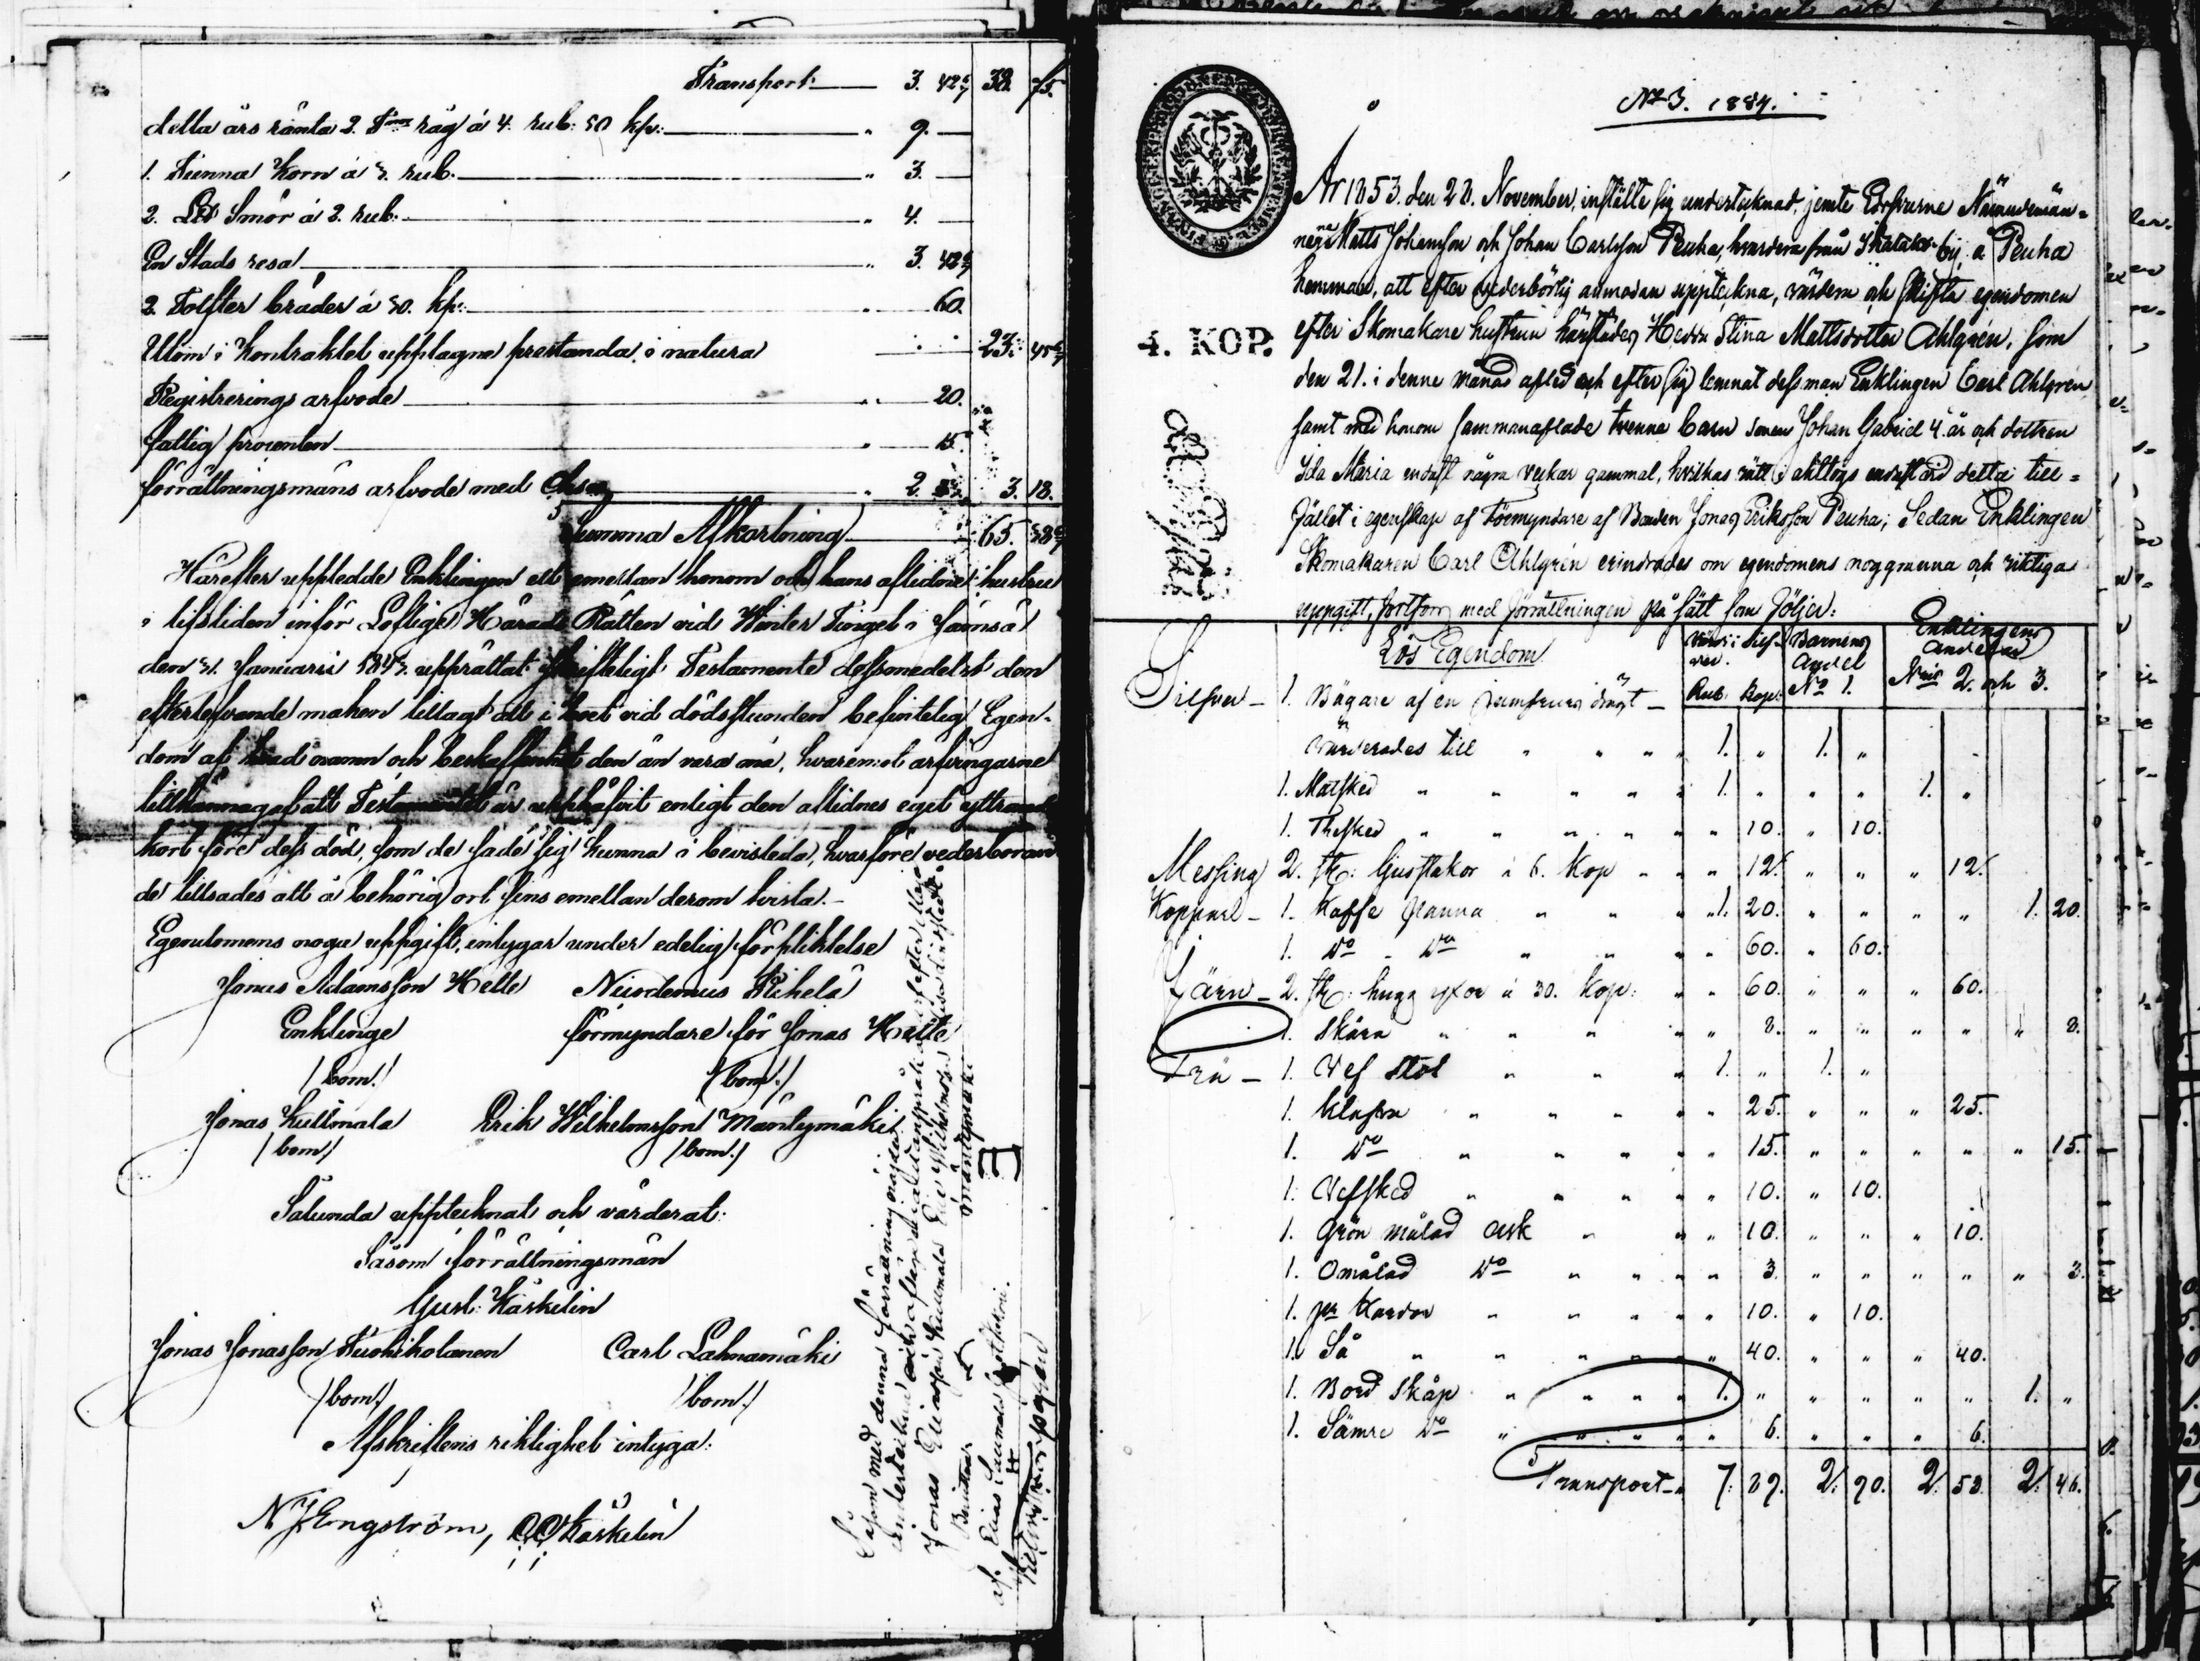 Transport: 3. 42 6/7 38. 75.
detta års ränta 2. T:nor råg á 4. rub: 50 kp: " 9.
1. Tunna Korn á 3. rub. " 3.
2. L℔ Smör á 2. rub: " 4.
En Stads resa " 3. 42 6/7
2. Tolfter bräder á 30. kp: " 60.
Utom i Kontraktet upptagna prestanda i natura 23. 45 5/7
Registrerings arfvode " 20.
fattig procenten " 15.
förrättningsmäns arfvode med 2. 3. 18.
Summa Afkortning 65. 38 5/7
Härefter uppledde Enklingen ett emellan honom och hans aflidne hustru
i lifstiden inför Loflige Härads Rätten vid Winter Tinget i Jämsä
den 31. Januarii 1843. upprättat skrifteligt Testamente dessmedelst den
efterlefvande maken tillagt all i boet vid dödsstunden befintelig Egen-
dom af hvad namn och beskaffenhet den än vara må, hvaremot arfvingarne
tillkännagaf att Testamentet är upphäfvit enligt den aflidnes eget yttrande
kort före dess död, som de sade sig kunna i bevisleda, hvarföre vederböran
de tillsades att å behörig ort sins emellan derom tvista.-
Egendomens noga uppgift, intygar under edelig förpliktelse
Jonas Adamsson Helle Nicodemus Pihela
Enklinge förmyndare för Jonas Helle
/bom./ /bom./
Jonas Kullmala Erik Wilhelmsson Mäntymäki
/bom/ /bom./
Sålunda upptecknat och värderat:
Såsom förrättningsmän
Gust: Käskelin
Jonas Jonasson Tuohikolanen Carl Lahnamäki
/bom./ /bom./
Afskriftens riktighet intyga:
N J Engström, Käskelin
Såsom med denna förrättning nöjda
Jonas Kullmala Eric Wilhelmsson
Mäntymäki
No 3. 1884.
4. KOP.
År 1853. den 28. November, instälte sig undertecknad, jemte Edsvurne Nämndemän-
nen Matts Johansson och Johan Carlsson Peuha, hvardera från by, å Peuha
hemman, att efter vederbörlig anmodan uppteckna, värdera och skifta egendomen
efter Skomakare hustrun härstädes Hedda Stina Mattsdotter Ahlgrén, som
den 21. i denne månad afled och efter sig lemnat dess man Enklingen Carl Ahlgrén,
samt med honom sammanaflade tvenne barn sonen Johan Gabriel 4. år och dottren
Ida Maria endast några veckar gammal, hvilkas rätt i akttogs endast vid detta till-
fället i egenskap af Förmyndare af Bonden Jonas Eriksson Peuha; Sedan Enklingen
Skomakaren Carl Ahlgrén erindrades om egendomens noggranna och riktiga
uppgift, fortfors med förrättningen på sätt som följer:
Lös Egendom. Värde i Silf- ver. Barnens andel Enklingens andelar
Rub. Kop: No 1. N:ris 2. och 3.
Silfver - 1. Bägare af en
värderades till " " " 1. " 1. "
1. Matsked " " " " 1. " " " 1. "
1. Thesked " " " " " 10. " 10.
Messing 2. st: ljusstakor á 6. Kop " " 12. " " " 12.
Koppar - 1. Kaffe panna " " " 1. 20. " " " " 1. 20.
1. Do - Do " " " 60. " 60.
Järn - 2. st: hugg yxor á 30. Kop: " " 60. " " " 60.
1. Skära " " " " 8. " " " " " 8.
Trä - 1. Vef stol " " " 1. " 1. "
1. Klafsa " " " " 25. " " " 25.
1. Do " " " " 15. " " " " " 15.
1. Vefsked " " " " 10. " 10.
1. Grön målad ask " " " 10. " " " 10.
1. Omålad Do " " " " 3. " " " " " 3.
1. pr Kardor " " " " 10. " 10.
1. Så " " " " " 40. " " " 40.
1. Bord skåp " " " " 1. " " " " " 1. "
1. Sämre Do " " " " " 6. " " " 6.
Transport - 7. 89. 2. 90. 2. 53. 2. 46.